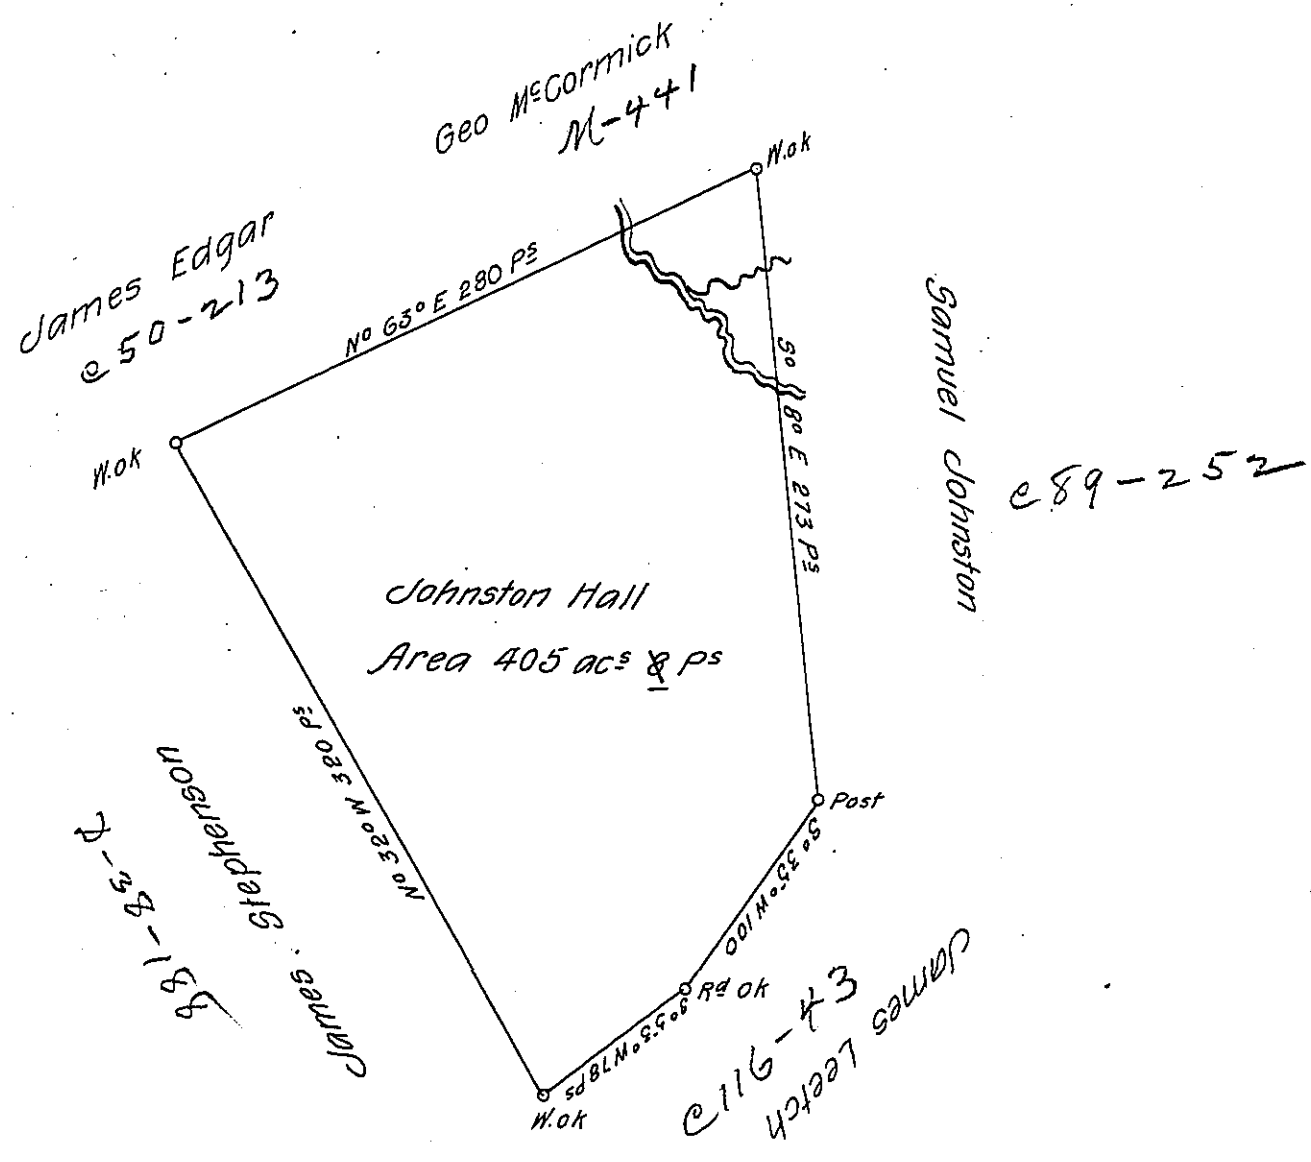 Geo McCormick
M-441
W.ok
James Edgar
C50-213
No 63° E 280 Ps
W.ok
So 8° E 273 Ps
Samuel Johnston
C89-252
Johnston Hall
Area 405 acs Ps
No 32° W 320 Ps
James. Stephenson
Post
So 35° W 100
Rd ok
So 53° W 78 ps
W.ok
C116-43
James Leetch